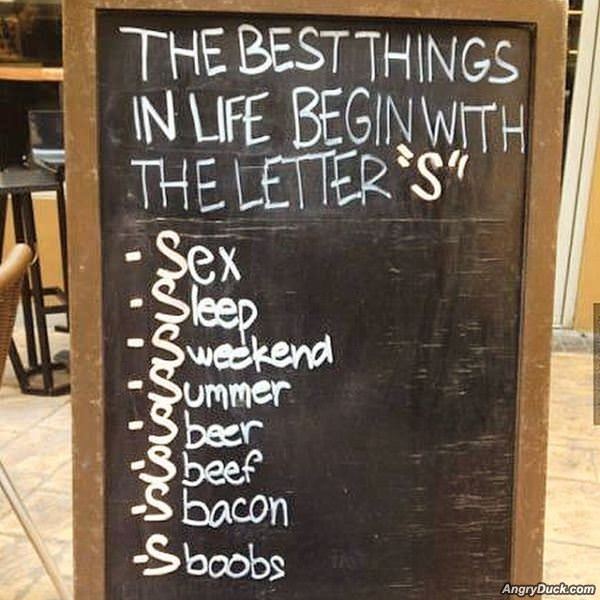 THE BEST THINGS
IN LIFE BEGIN WITH
THE LETTER "S"
- Sex
- Sleep
- Sweekend
- Summer
- Sbeer
- Sbeef
- Sbacon
- Sboobs
AngryDuck.com